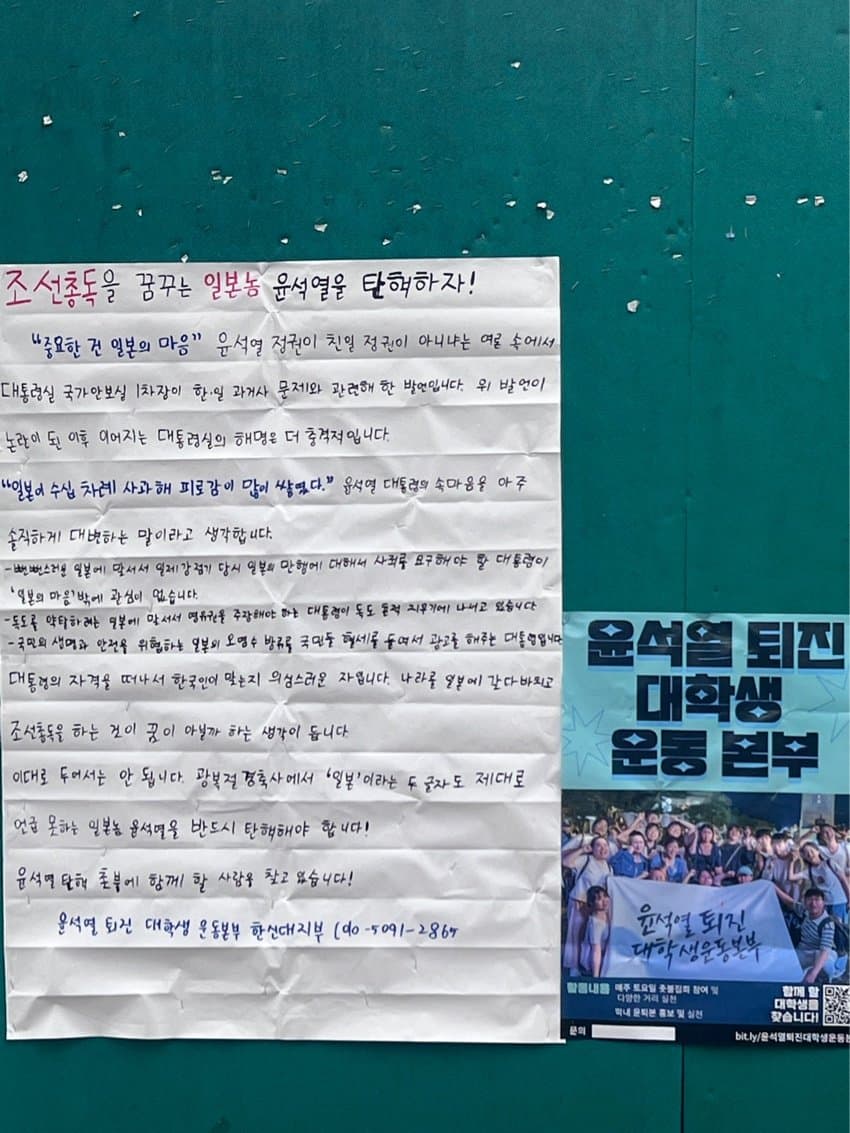 조선총독을 꿈꾸는 일본놈 윤석열을 탄핵하자!
"중요한 건 일본의 마음" 윤석열 정권이 친일 정권이 아니냐는 여론 속에서
대통령실 국가안보실 1차장이 한·일 과거사 문제와 관련해 한 발언입니다. 위 발언이
논란이 된 이후 이어지는 대통령실의 해명은 더 충격적입니다.
"일본이 수십 차례 사과해 피로감이 많이 쌓였다." 윤석열 대통령의 속마음을 아주
솔직하게 대변하는 말이라고 생각합니다.
- 뻔뻔스러운 일본에 맞서서 일제강점기 당시 일본의 만행에 대해서 사죄를 요구해야 할 대통령이
'일본의 마음' 밖에 관심이 없습니다.
- 독도를 약탈하려는 일본에 맞서서 영유권을 주장해야 하는 대통령이 독도 흔적 지우기에 나서고 있습니다
- 국민의 생명과 안전을 위협하는 일본의 오염수 방류를 국민들 혈세를 들여서 광고를 해주는 대통령입니다
대통령의 자격을 떠나서 한국인이 맞는지 의심스러운 자입니다. 나라를 일본에 갖다 바치고
조선총독을 하는 것이 꿈이 아닐까 하는 생각이 듭니다.
이대로 두어서는 안 됩니다. 광복절 경축사에서 '일본'이라는 두 글자도 제대로
언급 못하는 일본놈 윤석열을 반드시 탄핵해야 합니다!
윤석열 탄핵 촛불에 함께 할 사람을 찾고 있습니다!
윤석열 퇴진 대학생 운동본부 한신대지부 (010-5091-2865
윤석열 퇴진
대학생
운동 본부
윤석열 퇴진
대학생운동본부
활동내용 매주 토요일 촛불집회 참여 및
다양한 거리 실천
학내 윤퇴본 홍보 및 실천
함께 할
대학생을
찾습니다!
문의
bit.ly/윤석열퇴진대학생운동본